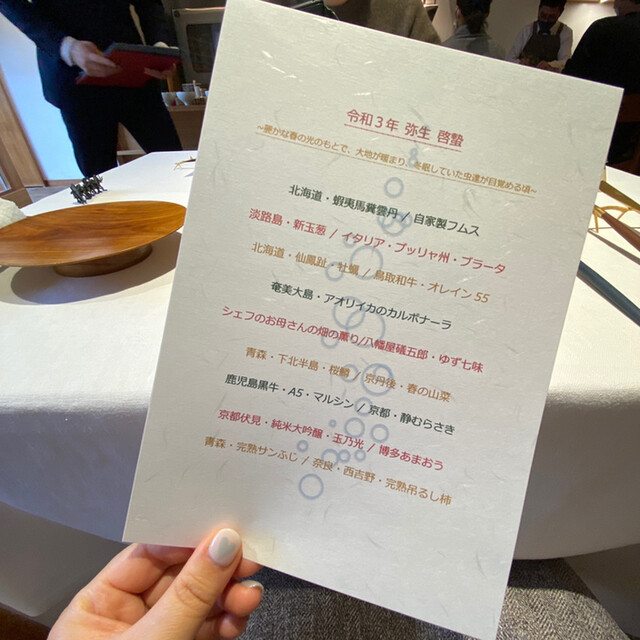 令和3年 弥生 啓蟄
~麗かな春の光のもとで、大地が暖まり、冬眠していた虫達が目覚める頃~
北海道・蝦夷馬糞雲丹 / 自家製フムス
淡路島・新玉葱 / イタリア・プッリャ州・ブラータ
北海道・仙鳳趾・牡蠣 / 鳥取和牛・オレイン55
奄美大島・アオリイカのカルボナーラ
シェフのお母さんの畑の薫り/八幡屋礒五郎・ゆず七味
青森・下北半島・桜鱒 / 京丹後・春の山菜
鹿児島黒牛・A5・マルシン / 京都・静むらさき
京都伏見・純米大吟醸・玉乃光 / 博多あまおう
青森・完熟サンふじ / 奈良・西吉野・完熟吊るし柿